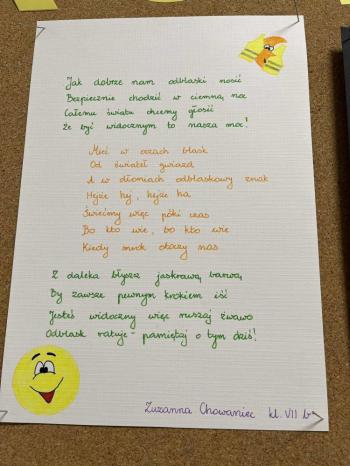 Jak dobrze nam odblaski nosić
Bezpiecznie chodzić w ciemną noc
Całemu światu chcemy głosić
Że być widocznym to nasza moc!
Mieć w oczach blask
Od świateł gwiazd
A w dłoniach odblaskowy znak
Hejże hej, hejże ha
Świećmy więc póki czas
Bo kto wie, bo kto wie
Kiedy mrok otoczy nas
Z daleka błyszcz jaskrawą barwą
By zawsze pewnym krokiem iść
Jesteś widoczny więc ruszaj żwawo
Odblask ratuje - pamiętaj o tym dziś!
Zuzanna Chowaniec kl. VII b